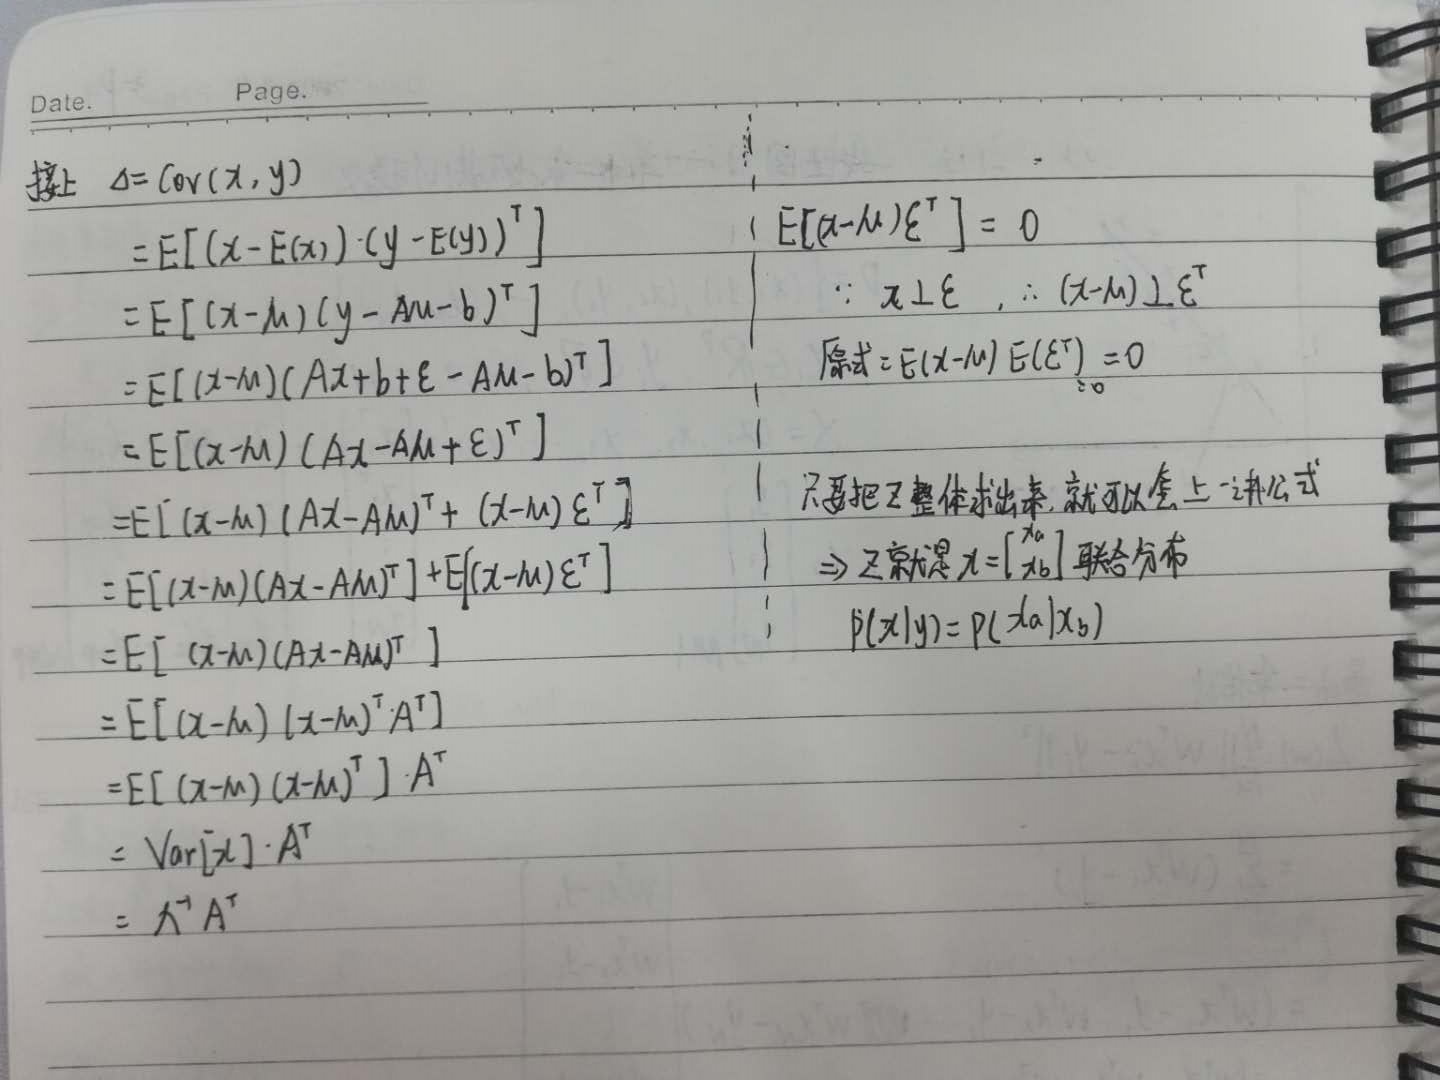 Date.
Page.
接上 Δ= Cov(x, y)
= E[(x-E(x))·(y-E(y))ᵀ]
= E[(x-μ)(y-Aμ-b)ᵀ]
= E[(x-μ)(Ax+b+ε-Aμ-b)ᵀ]
= E[(x-μ)(Ax-Aμ+ε)ᵀ]
= E[(x-μ)(Ax-Aμ)ᵀ+(x-μ)εᵀ]
= E[(x-μ)(Ax-Aμ)ᵀ]+E[(x-μ)εᵀ]
= E[(x-μ)(Ax-Aμ)ᵀ]
= E[(x-μ)(x-μ)ᵀ·Aᵀ]
= E[(x-μ)(x-μ)ᵀ]·Aᵀ
= Var[x]·Aᵀ
= Λ⁻¹Aᵀ
E[(x-μ)εᵀ] = 0
∵ x⊥ε , ∴ (x-μ)⊥εᵀ
原式= E(x-μ) E(εᵀ) = 0
=0
只要把Z整体求出来, 就可以套上一讲公式
⇒ Z就是 x=[xa xb] 联合分布
p(x|y)= p(xa|xb)